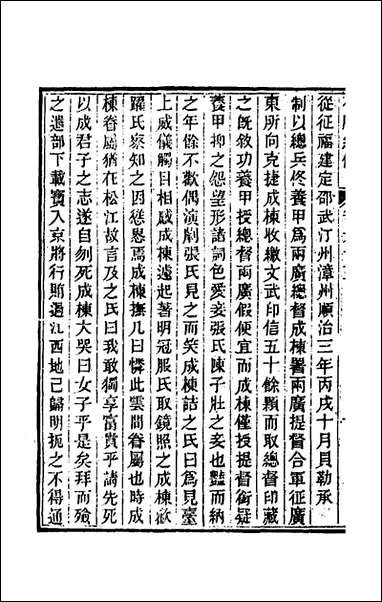 從征福建定邵武汀州漳州順治三年丙戌十月貝勒承
制以總兵佟養甲爲兩廣總督成棟署兩廣提督合軍征廣
東所向克捷成棟收繳文武印信五十餘顆而取總督印藏
之旣敘功養甲授總督兩廣假便宜而成棟僅授提督銜疑
養甲抑之怨望形諸詞色愛妾張氏陳子壯之妾也豔而納
之年餘不歡偶演劇張氏見之而笑成棟詰之氏曰爲見臺
上威儀觸目相感成棟遽起著明冠服氏取鏡照之成棟歡
躍氏察知之因慫恿焉成棟撫几曰憐此雲間眷屬也時成
棟眷屬猶在松江故言及之氏曰我敢獨享富貴乎請先死
以成君子之志遂自刎死成棟大哭曰女子乎是矣拜而殮
之遣部下載寶入京將行賄過江西地已歸明扼之不得通